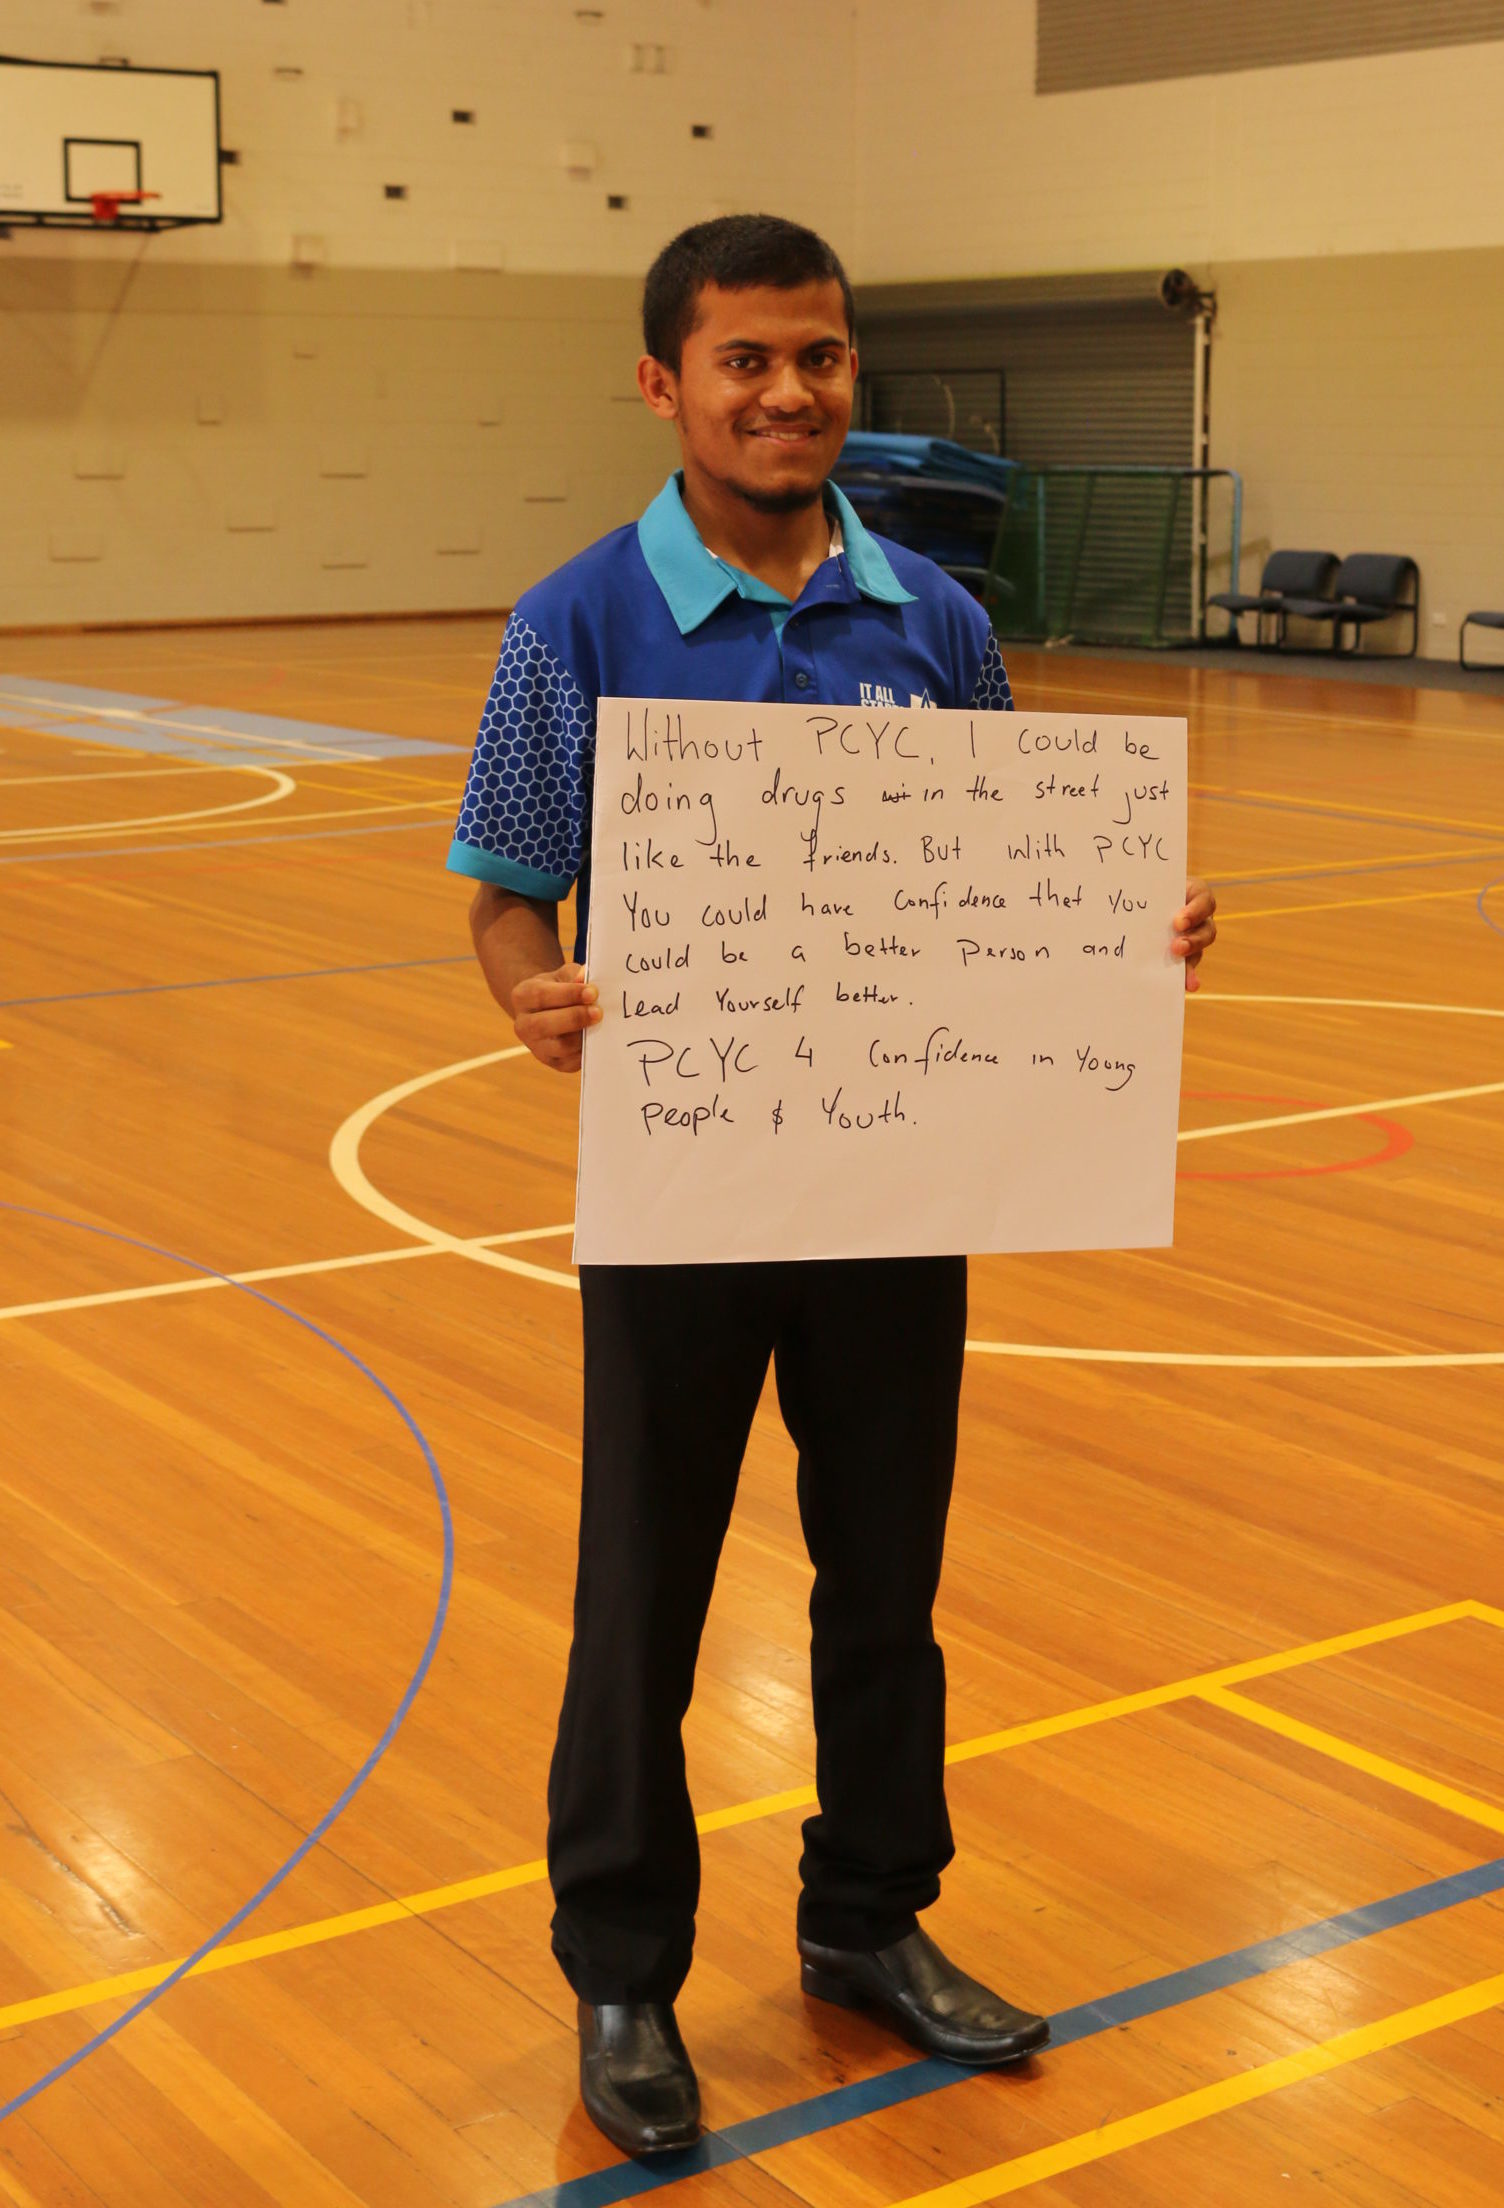 IT ALL
Without PCYC, I could be
doing drugs in the street just
like the friends. But with PCYC
You could have confidence that you
could be a better Person and
Lead Yourself better.
PCYC 4 Confidence in Young
People & Youth.